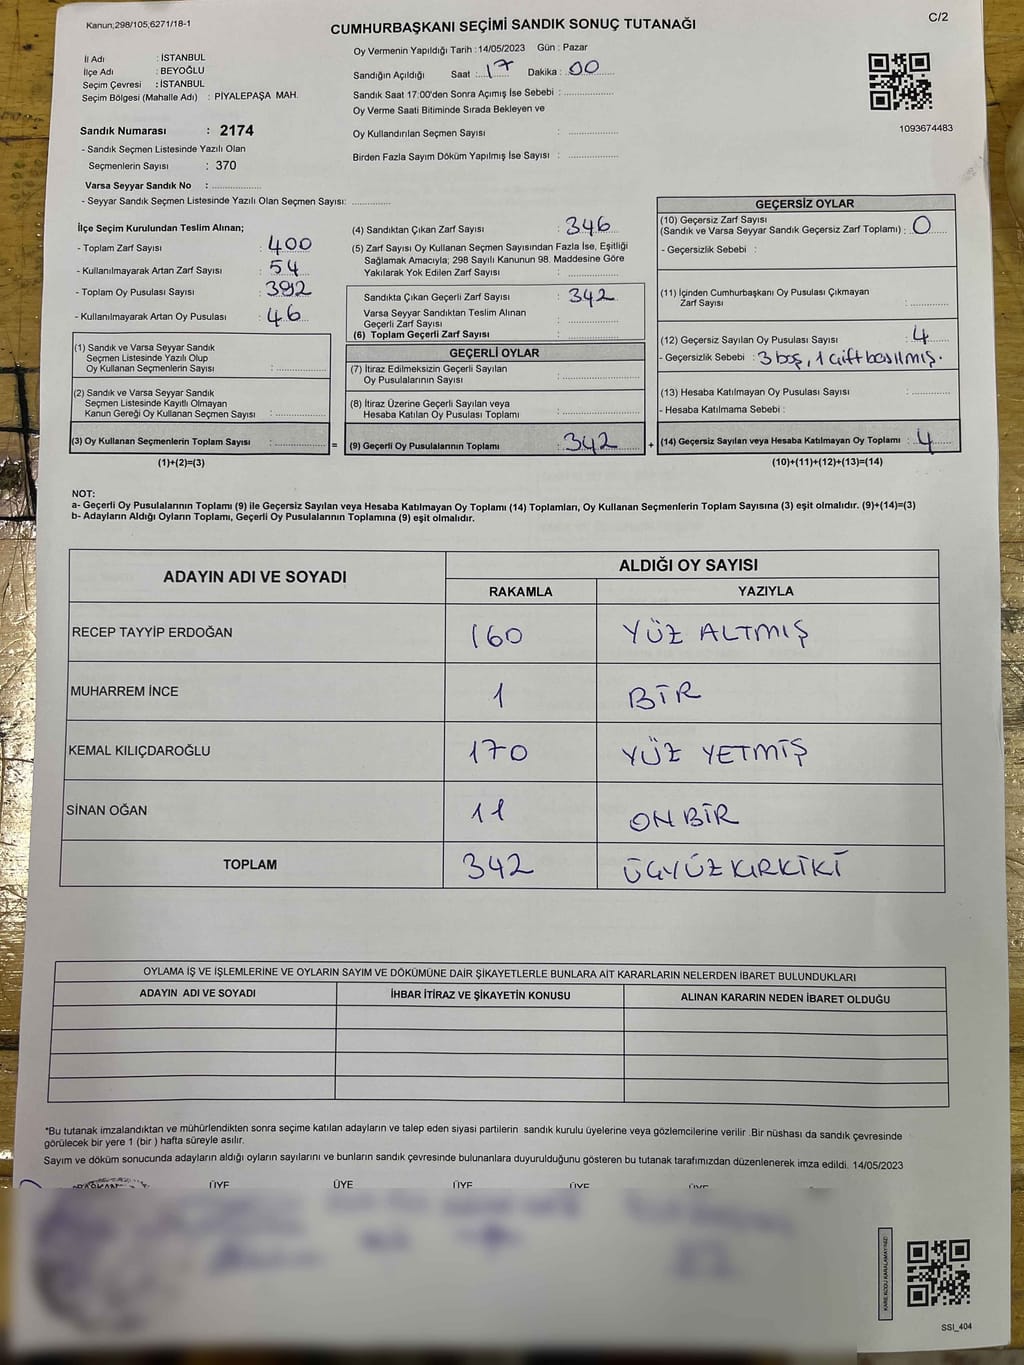 Kanun;298/105,6271/18-1
CUMHURBAŞKANI SEÇİMİ SANDIK SONUÇ TUTANAĞI
C/2
İl Adı : İSTANBUL
İlçe Adı : BEYOĞLU
Seçim Çevresi : İSTANBUL
Seçim Bölgesi (Mahalle Adı) : PİYALEPAŞA MAH.
Sandık Numarası : 2174
- Sandık Seçmen Listesinde Yazılı Olan
Seçmenlerin Sayısı : 370
Varsa Seyyar Sandık No : ..................
- Seyyar Sandık Seçmen Listesinde Yazılı Olan Seçmen Sayısı: ..............
Oy Vermenin Yapıldığı Tarih : 14/05/2023 Gün : Pazar
Sandığın Açıldığı Saat : 17 Dakika : 00
Sandık Saat 17:00'den Sonra Açımış İse Sebebi : ..................
Oy Verme Saati Bitiminde Sırada Bekleyen ve
Oy Kullandırılan Seçmen Sayısı : ..................
Birden Fazla Sayım Döküm Yapılmış İse Sayısı : ..................
1093674483
İlçe Seçim Kurulundan Teslim Alınan;
- Toplam Zarf Sayısı : 400
- Kullanılmayarak Artan Zarf Sayısı : 54
- Toplam Oy Pusulası Sayısı : 392
- Kullanılmayarak Artan Oy Pusulası : 46
(1) Sandık ve Varsa Seyyar Sandık
Seçmen Listesinde Yazılı Olup
Oy Kullanan Seçmenlerin Sayısı : ..................
(2) Sandık ve Varsa Seyyar Sandık
Seçmen Listesinde Kayıtlı Olmayan
Kanun Gereği Oy Kullanan Seçmen Sayısı : ..................
(3) Oy Kullanan Seçmenlerin Toplam Sayısı : .................. =
(1)+(2)=(3)
(4) Sandıktan Çıkan Zarf Sayısı : 346
(5) Zarf Sayısı Oy Kullanan Seçmen Sayısından Fazla İse, Eşitliği
Sağlamak Amacıyla; 298 Sayılı Kanunun 98. Maddesine Göre
Yakılarak Yok Edilen Zarf Sayısı : ..................
Sandıkta Çıkan Geçerli Zarf Sayısı : 342
Varsa Seyyar Sandıktan Teslim Alınan
Geçerli Zarf Sayısı : ..................
(6) Toplam Geçerli Zarf Sayısı : ..................
GEÇERLİ OYLAR
(7) İtiraz Edilmeksizin Geçerli Sayılan
Oy Pusulalarının Sayısı : ..................
(8) İtiraz Üzerine Geçerli Sayılan veya
Hesaba Katılan Oy Pusulası Toplamı : ..................
(9) Geçerli Oy Pusulalarının Toplamı : 342 +
GEÇERSİZ OYLAR
(10) Geçersiz Zarf Sayısı
(Sandık ve Varsa Seyyar Sandık Geçersiz Zarf Toplamı) : 0
- Geçersizlik Sebebi :
(11) İçinden Cumhurbaşkanı Oy Pusulası Çıkmayan
Zarf Sayısı : ..............
(12) Geçersiz Sayılan Oy Pusulası Sayısı : 4
- Geçersizlik Sebebi : 3 boş, 1 çift basılmış.
(13) Hesaba Katılmayan Oy Pusulası Sayısı : ..............
- Hesaba Katılmama Sebebi :
(14) Geçersiz Sayılan veya Hesaba Katılmayan Oy Toplamı : 4
(10)+(11)+(12)+(13)=(14)
NOT:
a- Geçerli Oy Pusulalarının Toplamı (9) ile Geçersiz Sayılan veya Hesaba Katılmayan Oy Toplamı (14) Toplamları, Oy Kullanan Seçmenlerin Toplam Sayısına (3) eşit olmalıdır. (9)+(14)=(3)
b- Adayların Aldığı Oyların Toplamı, Geçerli Oy Pusulalarının Toplamına (9) eşit olmalıdır.
ADAYIN ADI VE SOYADI ALDIĞI OY SAYISI
RAKAMLA YAZIYLA
RECEP TAYYİP ERDOĞAN 160 YÜZ ALTMIŞ
MUHARREM İNCE 1 BİR
KEMAL KILIÇDAROĞLU 170 YÜZ YETMİŞ
SİNAN OĞAN 11 ONBİR
TOPLAM 342 ÜÇYÜZKIRKİKİ
OYLAMA İŞ VE İŞLEMLERİNE VE OYLARIN SAYIM VE DÖKÜMÜNE DAİR ŞİKAYETLERLE BUNLARA AİT KARARLARIN NELERDEN İBARET BULUNDUKLARI
ADAYIN ADI VE SOYADI İHBAR İTİRAZ VE ŞİKAYETİN KONUSU ALINAN KARARIN NEDEN İBARET OLDUĞU
*Bu tutanak imzalandıktan ve mühürlendikten sonra seçime katılan adayların ve talep eden siyasi partilerin sandık kurulu üyelerine veya gözlemcilerine verilir .Bir nüshası da sandık çevresinde
görülecek bir yere 1 (bir ) hafta süreyle asılır.
Sayım ve döküm sonucunda adayların aldığı oyların sayılarını ve bunların sandık çevresinde bulunanlara duyurulduğunu gösteren bu tutanak tarafımızdan düzenlenerek imza edildi. 14/05/2023
BAŞKAN ÜYE ÜYE ÜYE ÜYE ÜYE
KARE KODU KARALAMAYINIZ!
SSI_404